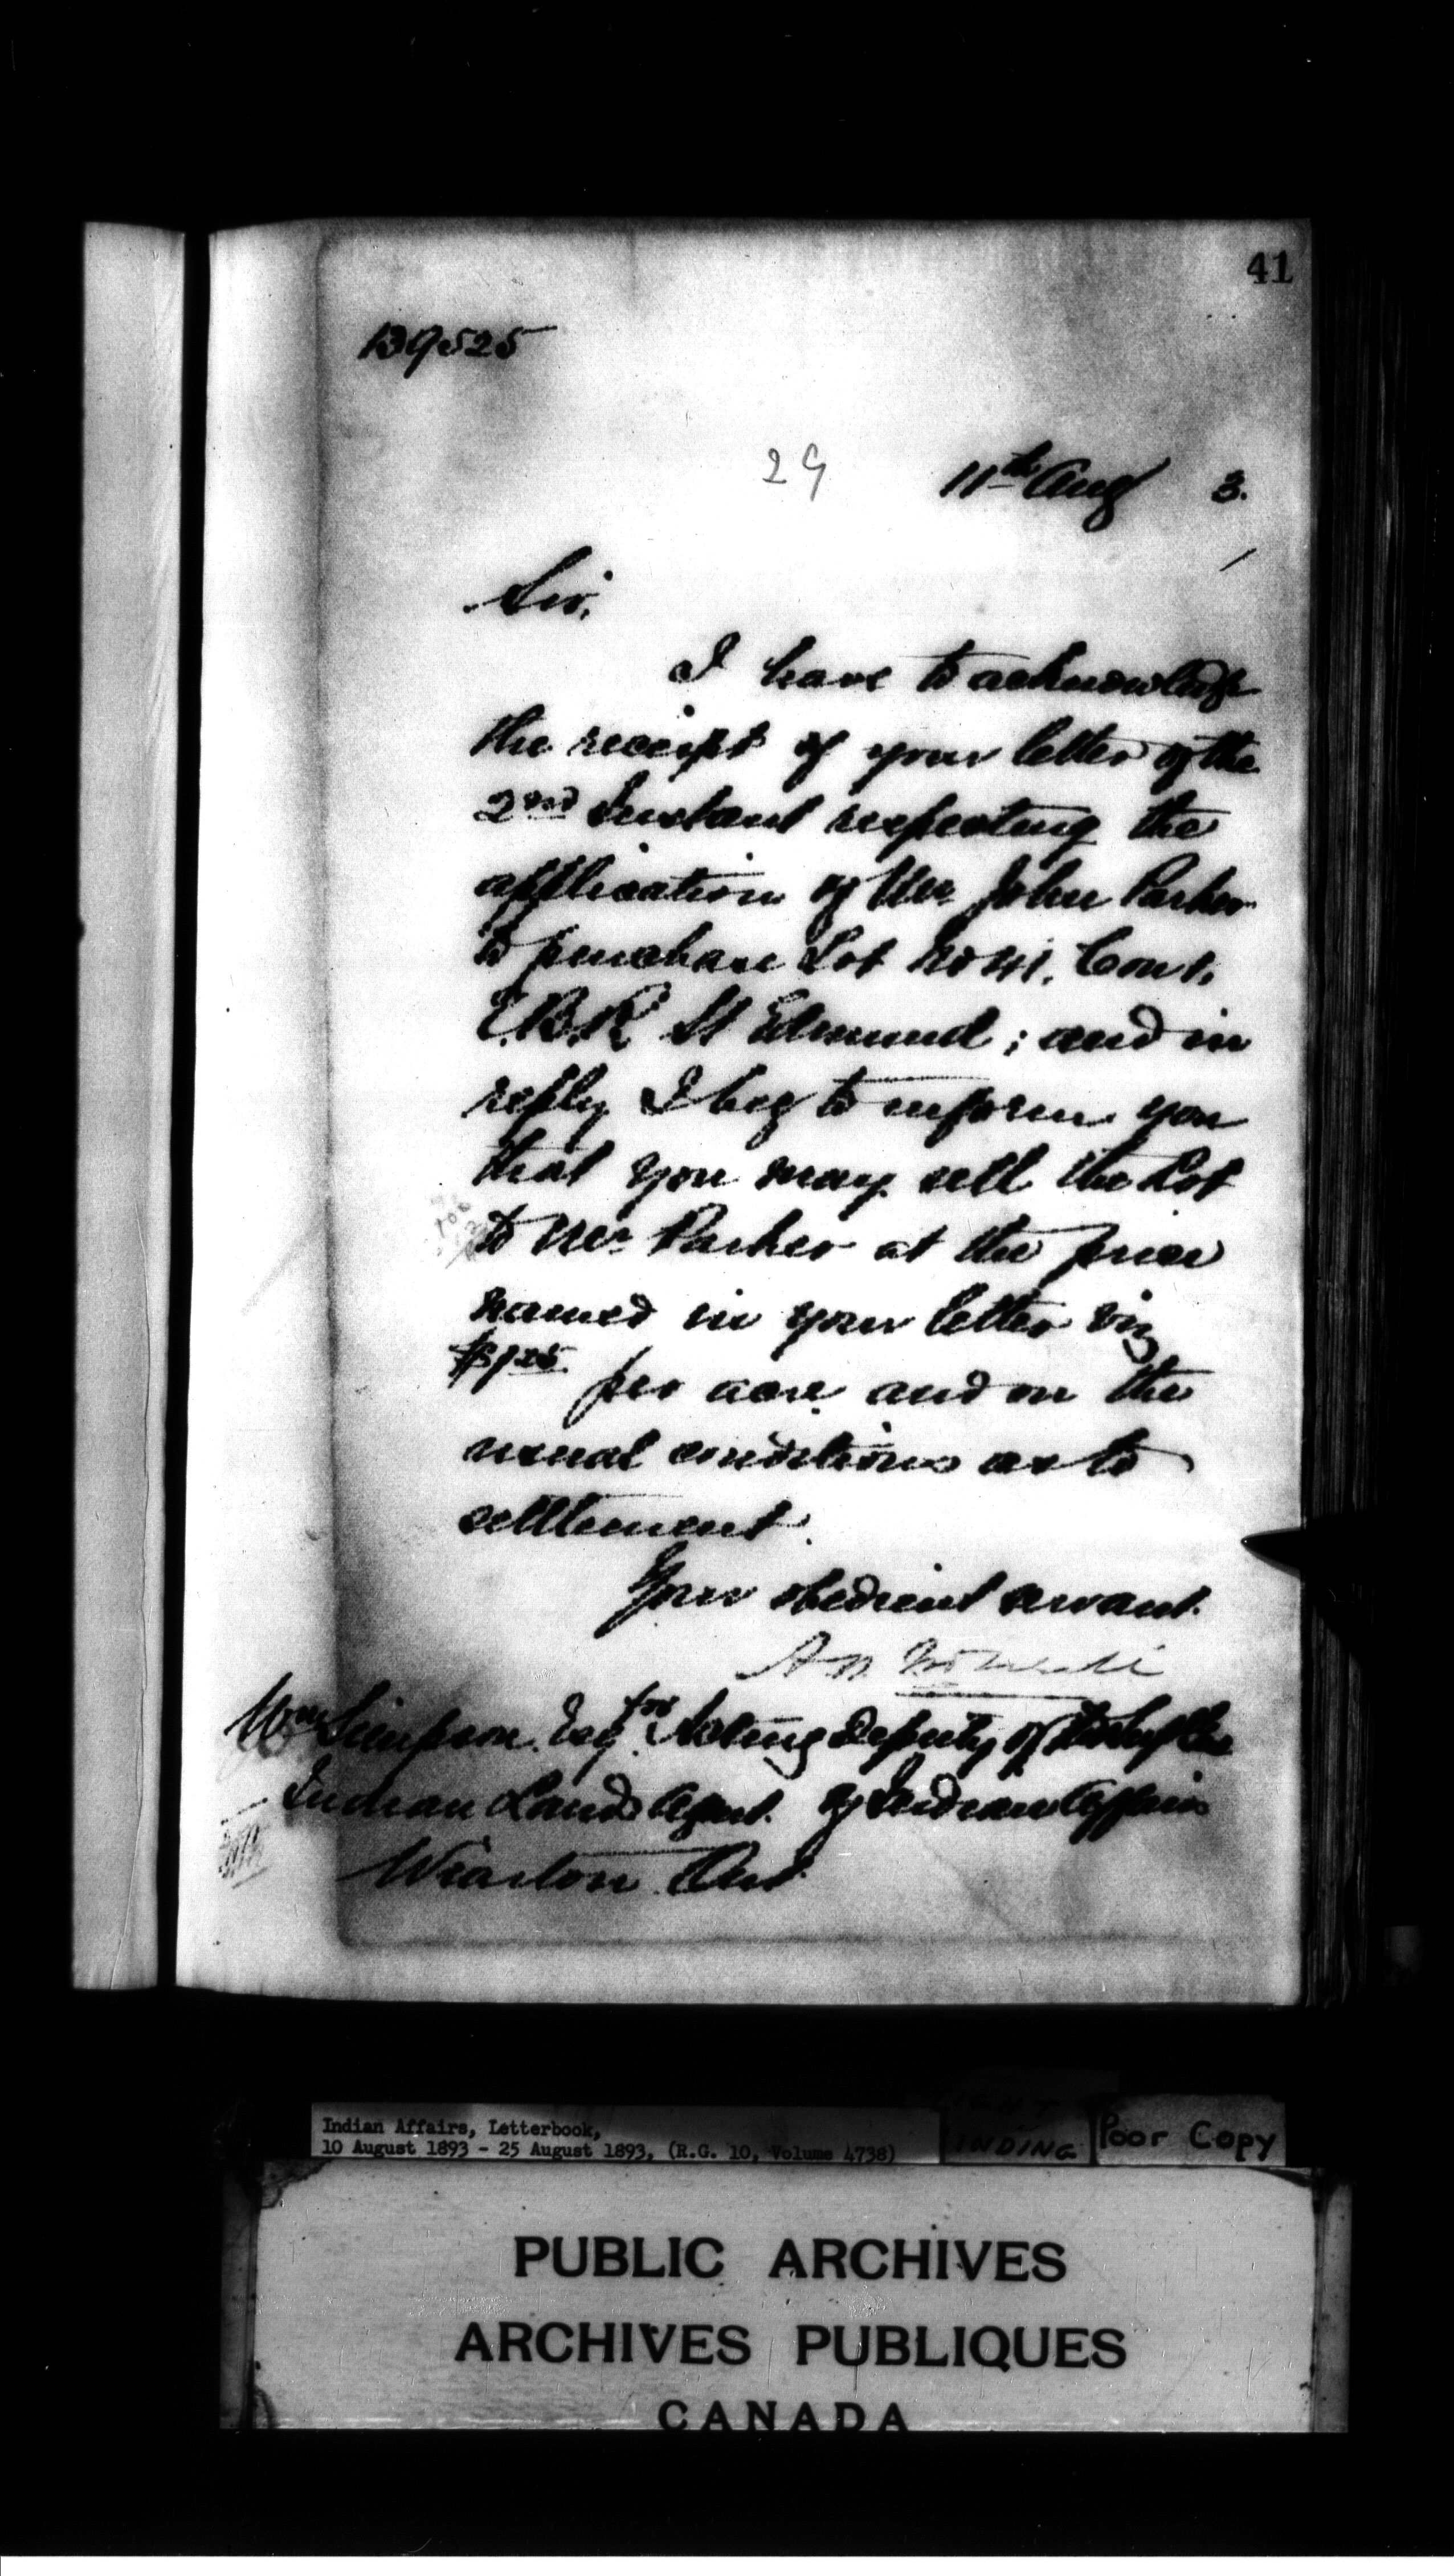 41
139525
29 11th Aug 3.
Sir,
I have to acknowledge
the receipt of your letter of the
2nd Instant respecting the
application of Mr. John Parker
to purchase Lot No 41, Con 1,
E.B.R St Edmund; and in
reply I beg to inform you
that you may sell the Lot
to Mr. Parker at the price
named in your letter viz
$1.25 per acre and on the
usual conditions as to
settlement.
Your obedient servant.
Wm Simpson Esq. for Acting Deputy of the
Indian Lands Agent. of Indian Affairs
Wiarton Ont.
Indian Affairs, Letterbook,
10 August 1893 - 25 August 1893, (R.G. 10, Volume 4738)
INDING
Poor Copy
PUBLIC ARCHIVES
ARCHIVES PUBLIQUES
CANADA